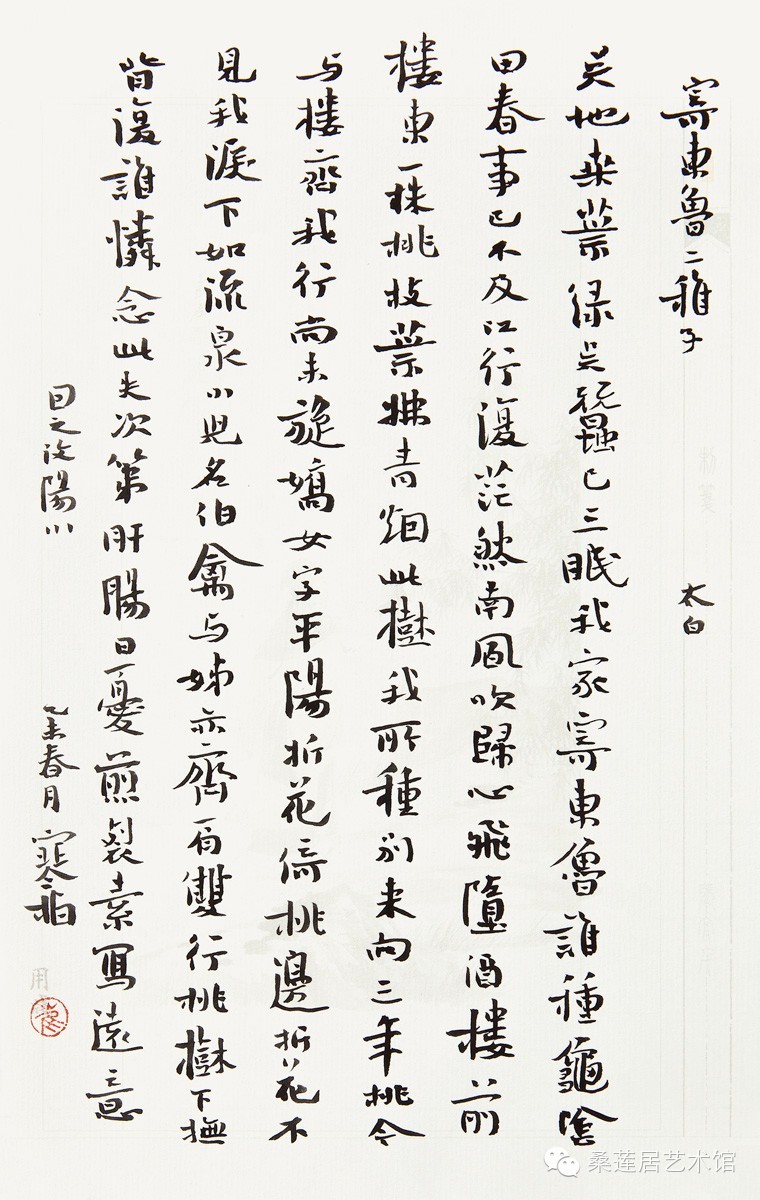 寄東魯二稚子 太白
吴地桑葉绿吴蠶已三眠我家寄東魯誰種龜陰
田春事已不及江行復茫然南風吹歸心飛墮酒樓前
樓東一株桃枝葉拂青烟此樹我所種别来向三年桃今
与樓齊我行尚未旋嬌女字平陽折花倚桃邊折花不
見我淚下如流泉小兒名伯禽与姊亦齊肩雙行桃樹下撫
背復誰憐念此失次第肝腸日憂煎裂素寫遠意
因之汶陽川 乙未春月
桑莲居艺术馆